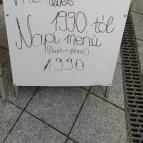 leves
1990.-tól
Napi menü
(leves+főétel)
1990